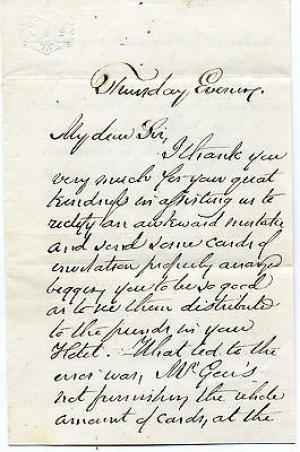 Thursday Evening.
My dear Sir,
I thank you
very much for your great
kindness in assisting us to
rectify an awkward mistake
and send some cards of
invitation properly arranged
begging you to be so good
as to see them distributed
to the friends in your
Hotel. What led to the
error was, Mr
not furnishing the whole
amount of cards, at the